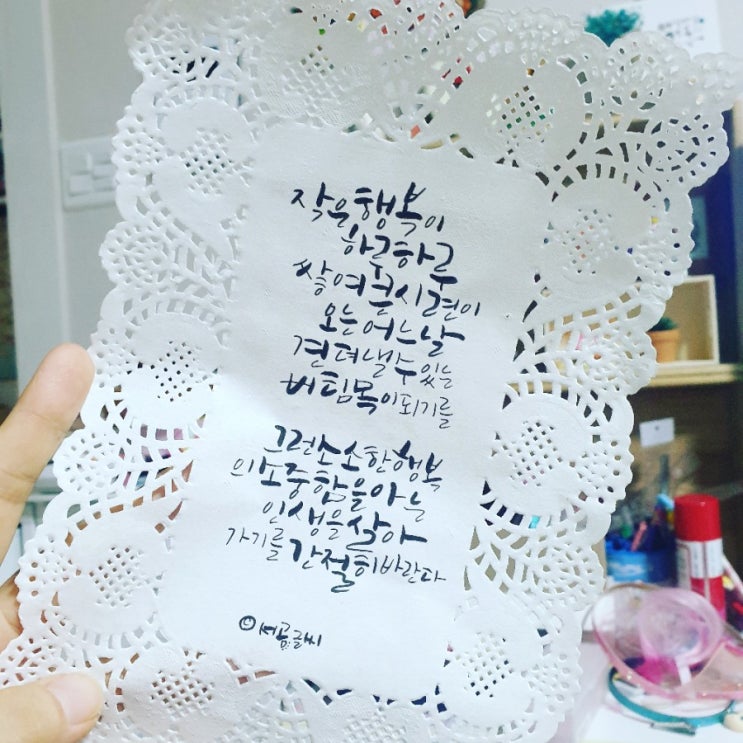 작은행복이
하루하루
쌓여 큰시련이
오는 어느날
견뎌낼수있는
버팀목이되기를
그런소소한행복
의소중함을아는
인생을살아
가기를간절히바란다
©써콤글씨